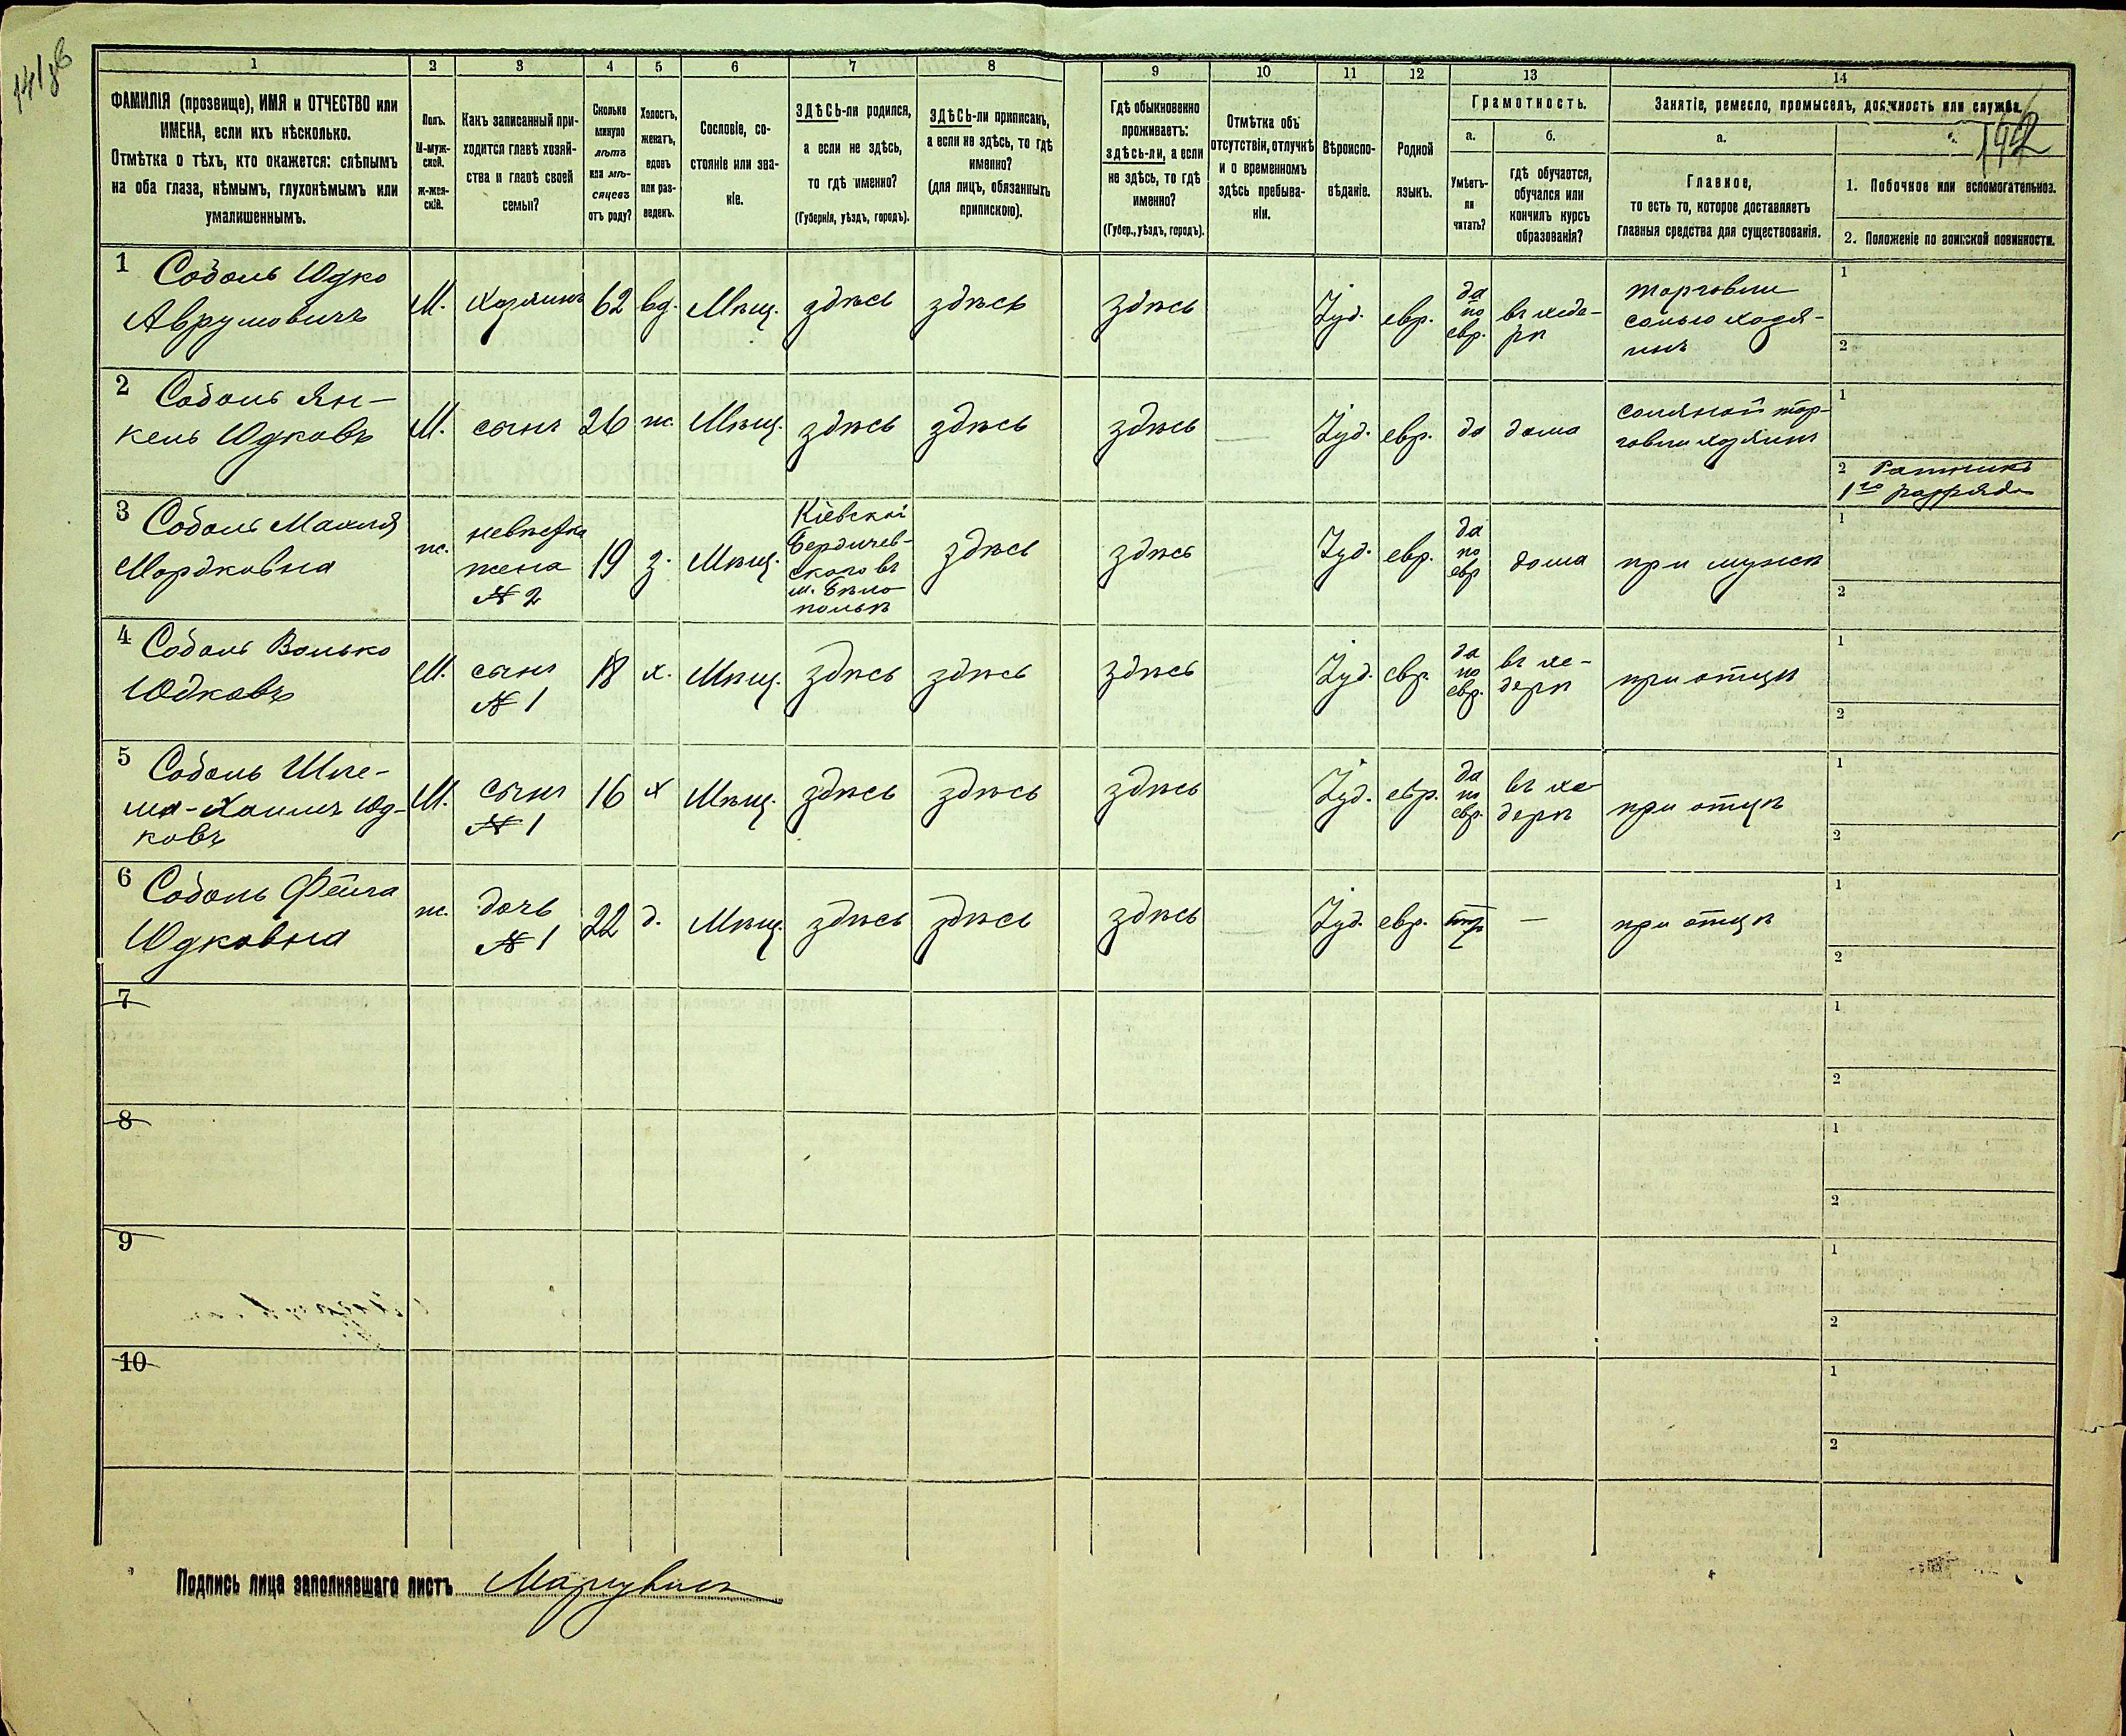 1 2 3 4 5 6 7 8 9 10 11 12 13 14
ФАМИЛІЯ (прозвище), ИМЯ и ОТЧЕСТВО или
ИМЕНА, если ихъ нѣсколько.
Отмѣтка о тѣхъ, кто окажется: слѣпымъ
на оба глаза, нѣмымъ, глухонѣмымъ или
умалишеннымъ.
Полъ.
М-муж-
ской.
ж-жен-
скій.
Какъ записанный при-
ходится главѣ хозяй-
ства и главѣ своей
семьи?
Сколько
минуло
лѣтъ
или мѣ-
сяцевъ
отъ роду?
Холостъ,
женатъ,
вдовъ
или раз-
веденъ.
Сословіе, со-
стояніе или зва-
ніе.
ЗДѢСЬ-ли родился,
а если не здѣсь,
то гдѣ именно?
(Губернія, уѣздъ, городъ).
ЗДѢСЬ-ли приписанъ,
а если не здѣсь, то гдѣ
именно?
(для лицъ, обязанныхъ
припискою).
Гдѣ обыкновенно
проживаетъ:
здѣсь-ли, а если
не здѣсь, то гдѣ
именно?
(Губер., уѣздъ, городъ).
Отмѣтка объ
отсутствіи, отлучкѣ
и о временномъ
здѣсь пребыва-
ніи.
Вѣроиспо-
вѣданіе.
Родной
языкъ.
Грамотность.
а.
Умѣетъ-
ли
читать?
б.
гдѣ обучается,
обучался или
кончилъ курсъ
образованія?
Занятіе, ремесло, промыселъ, должность или служба.
а.
Главное,
то есть то, которое доставляетъ
главныя средства для существованія.
1. Побочное или вспомогательное.
2. Положеніе по воинской повинности.
1 Соболь Юдко
Аврумовичъ
М.
хозяинъ
62
вд.
Мѣщ.
здѣсь
здѣсь
здѣсь
Іуд.
евр.
да
по
евр.
въ хеде-
рѣ
торговли
солью хозя-
инъ
1
2
2 Соболь Ян-
кель Юдковъ
М.
сынъ
26
ж.
Мѣщ.
здѣсь
здѣсь
здѣсь
Іуд.
евр.
да
дома
соляной тор-
говли хозяинъ
1
2 Ратникъ
1го разряда
3 Соболь Махля
Мордковна
ж.
невѣстка
жена
№ 2
19
з.
Мѣщ.
Кіевской
Бердичев-
скаго въ
м. Бѣло-
польѣ
здѣсь
здѣсь
Іуд.
евр.
да
по
евр
дома
при мужѣ
1
2
4 Соболь Волько
Юдковъ
М.
сынъ
№ 1
18
х.
Мѣщ.
здѣсь
здѣсь
здѣсь
Іуд.
евр.
да
по
евр.
въ хе-
дерѣ
при отцѣ
1
2
5 Соболь Шле-
ма-Хаимъ Юд-
ковъ
М.
сынъ
№ 1
16
х
Мѣщ.
здѣсь
здѣсь
здѣсь
Іуд.
евр.
да
по
евр.
въ хе-
дерѣ
при отцѣ
1
2
6 Соболь Фейга
Юдковна
ж.
дочь
№ 1
22
д.
Мѣщ.
здѣсь
здѣсь
здѣсь
Іуд.
евр.
—
при отцѣ
1
2
7
1
2
8
1
2
9
1
2
10
1
2
Подпись лица заполнявшаго листъ